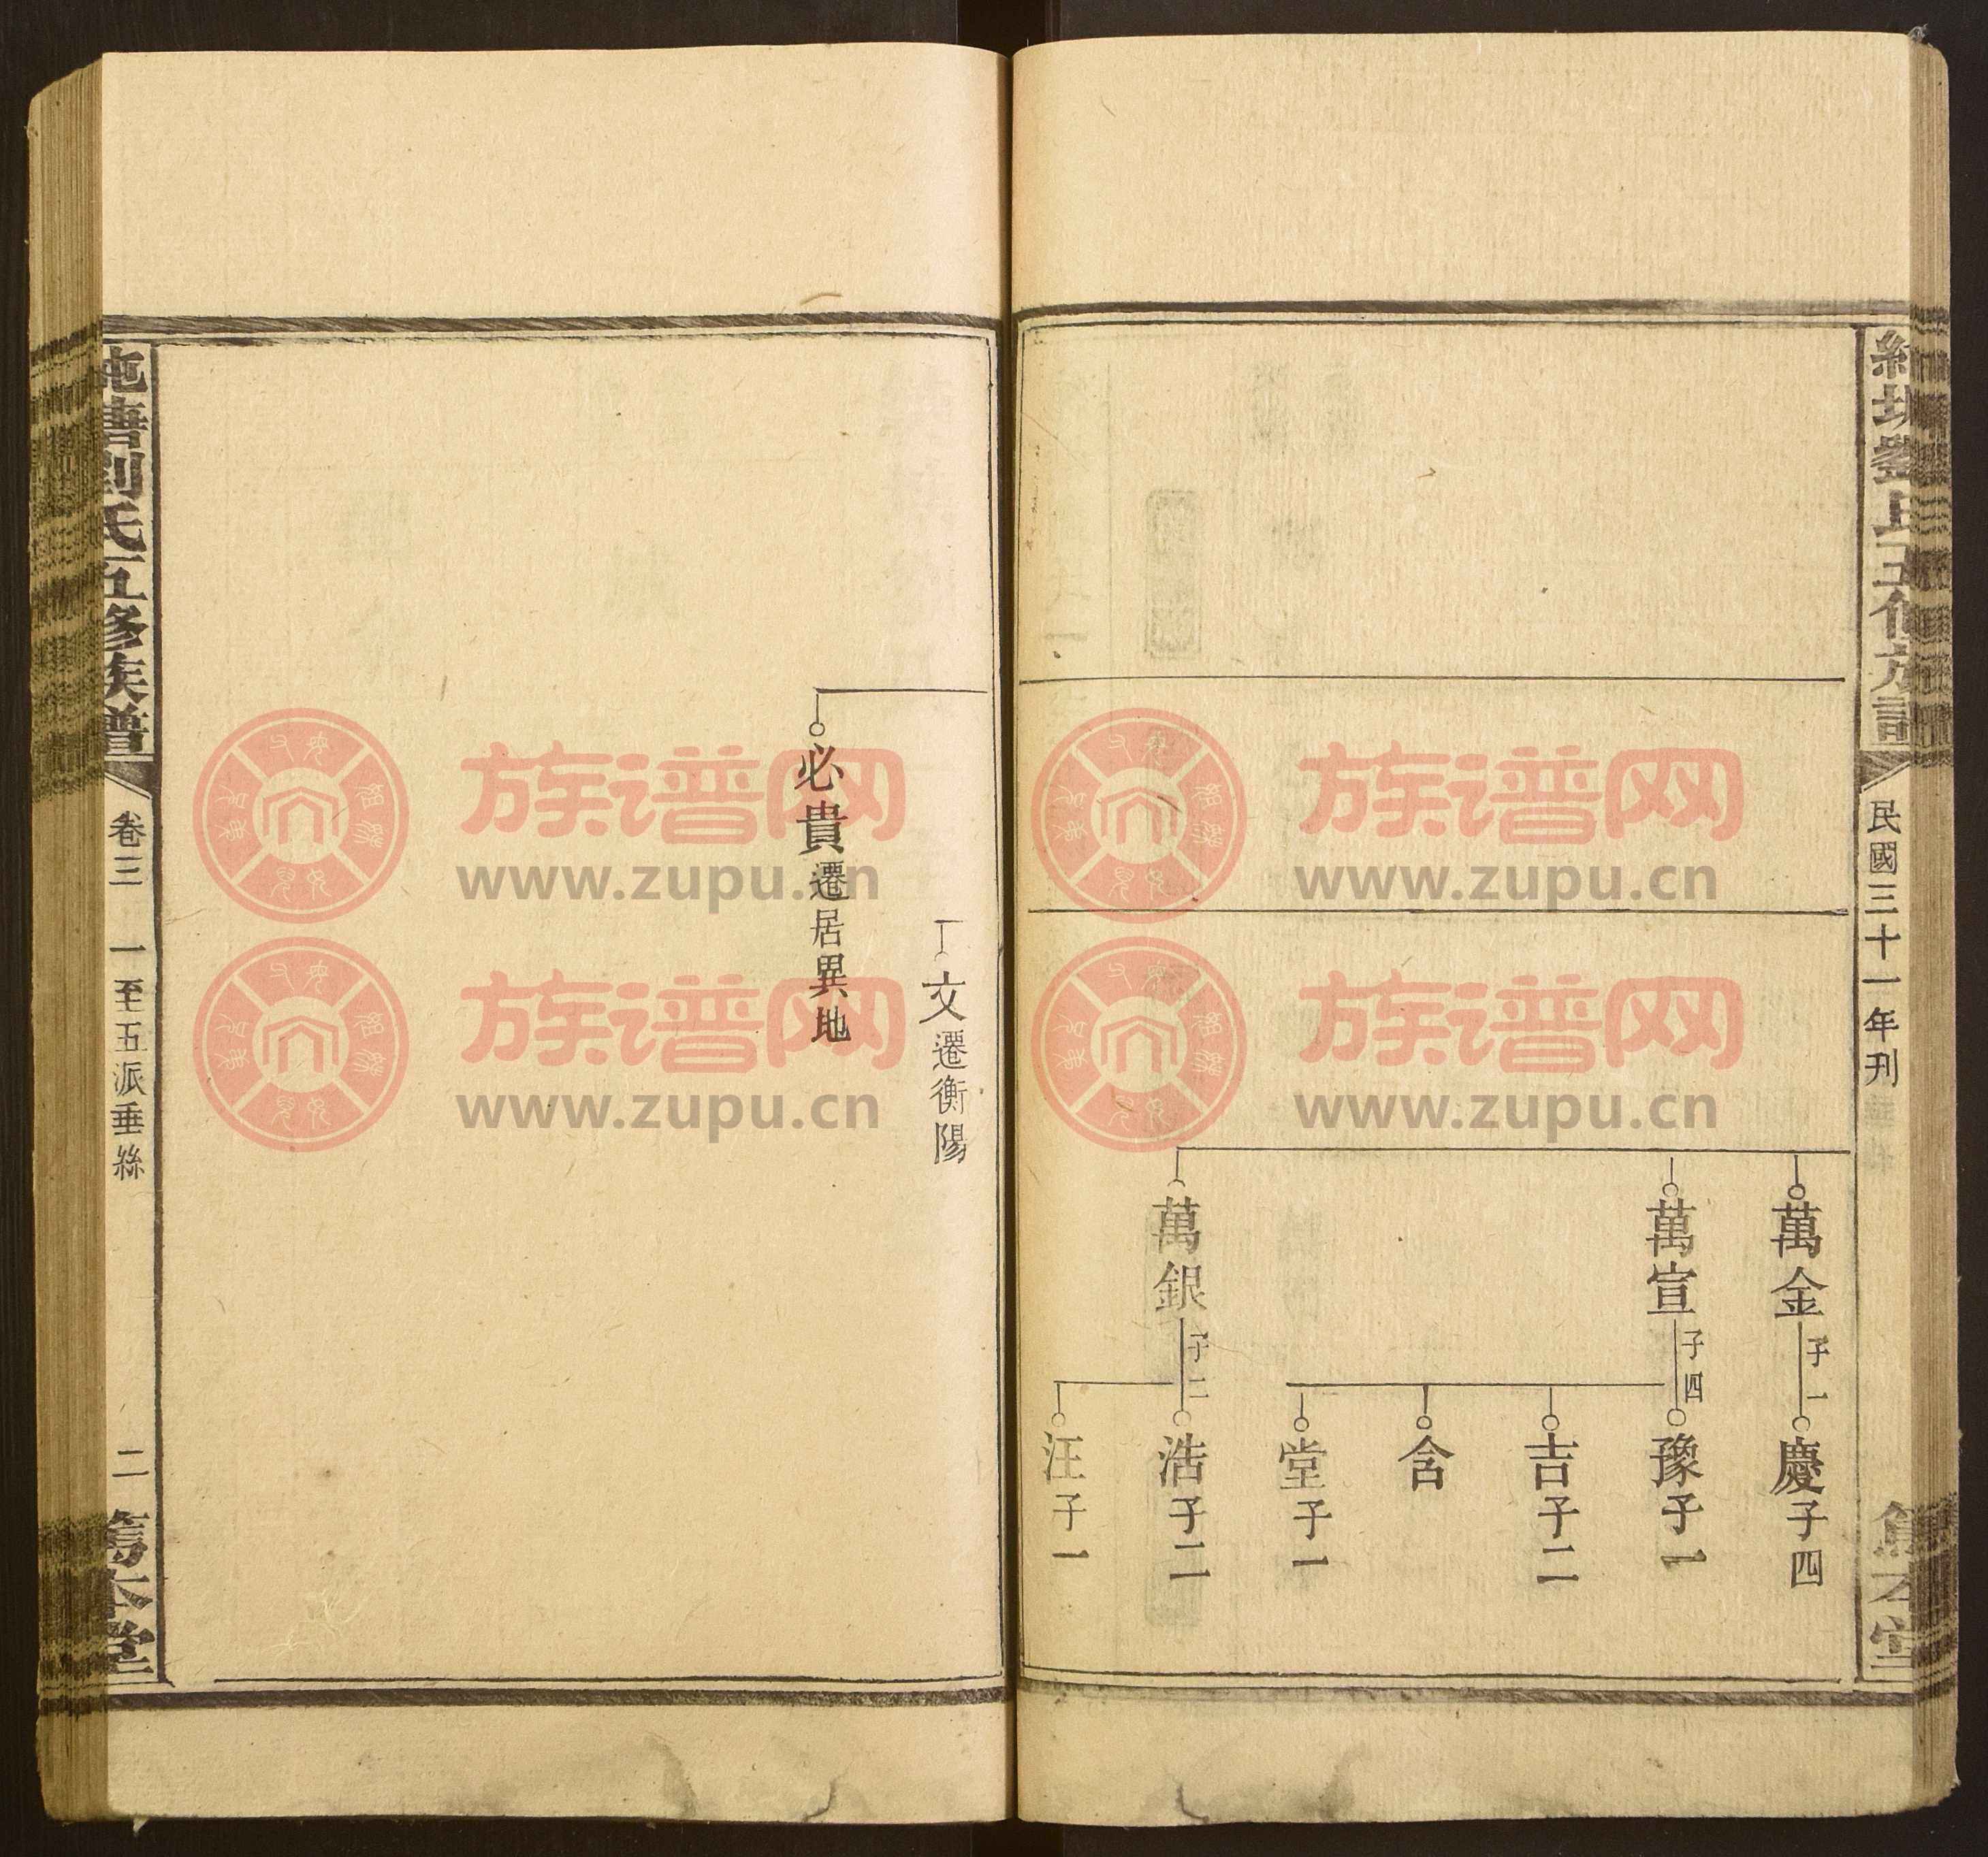 民國三十一年刊
萬金子一
慶子四
萬宣子四
豫子一
吉子二
含
堂子一
萬銀子二
浩子二
汪子一
文遷衡陽
必貴遷居異地
劉氏五修族譜
卷三
一至五派垂絲
二
篤本堂
族谱网
www.zupu.cn
族谱网
www.zupu.cn
族谱网
www.zupu.cn
族谱网
www.zupu.cn